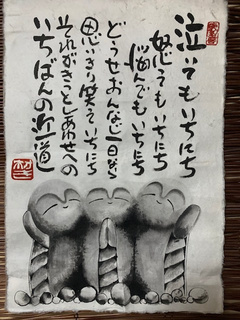 泣いてもいちにち
怒ってもいちにち
悩んでもいちにち
どうせおんなじ一日なら
思いきり笑っていちにち
それがきっとしあわせへの
いちばんの近道